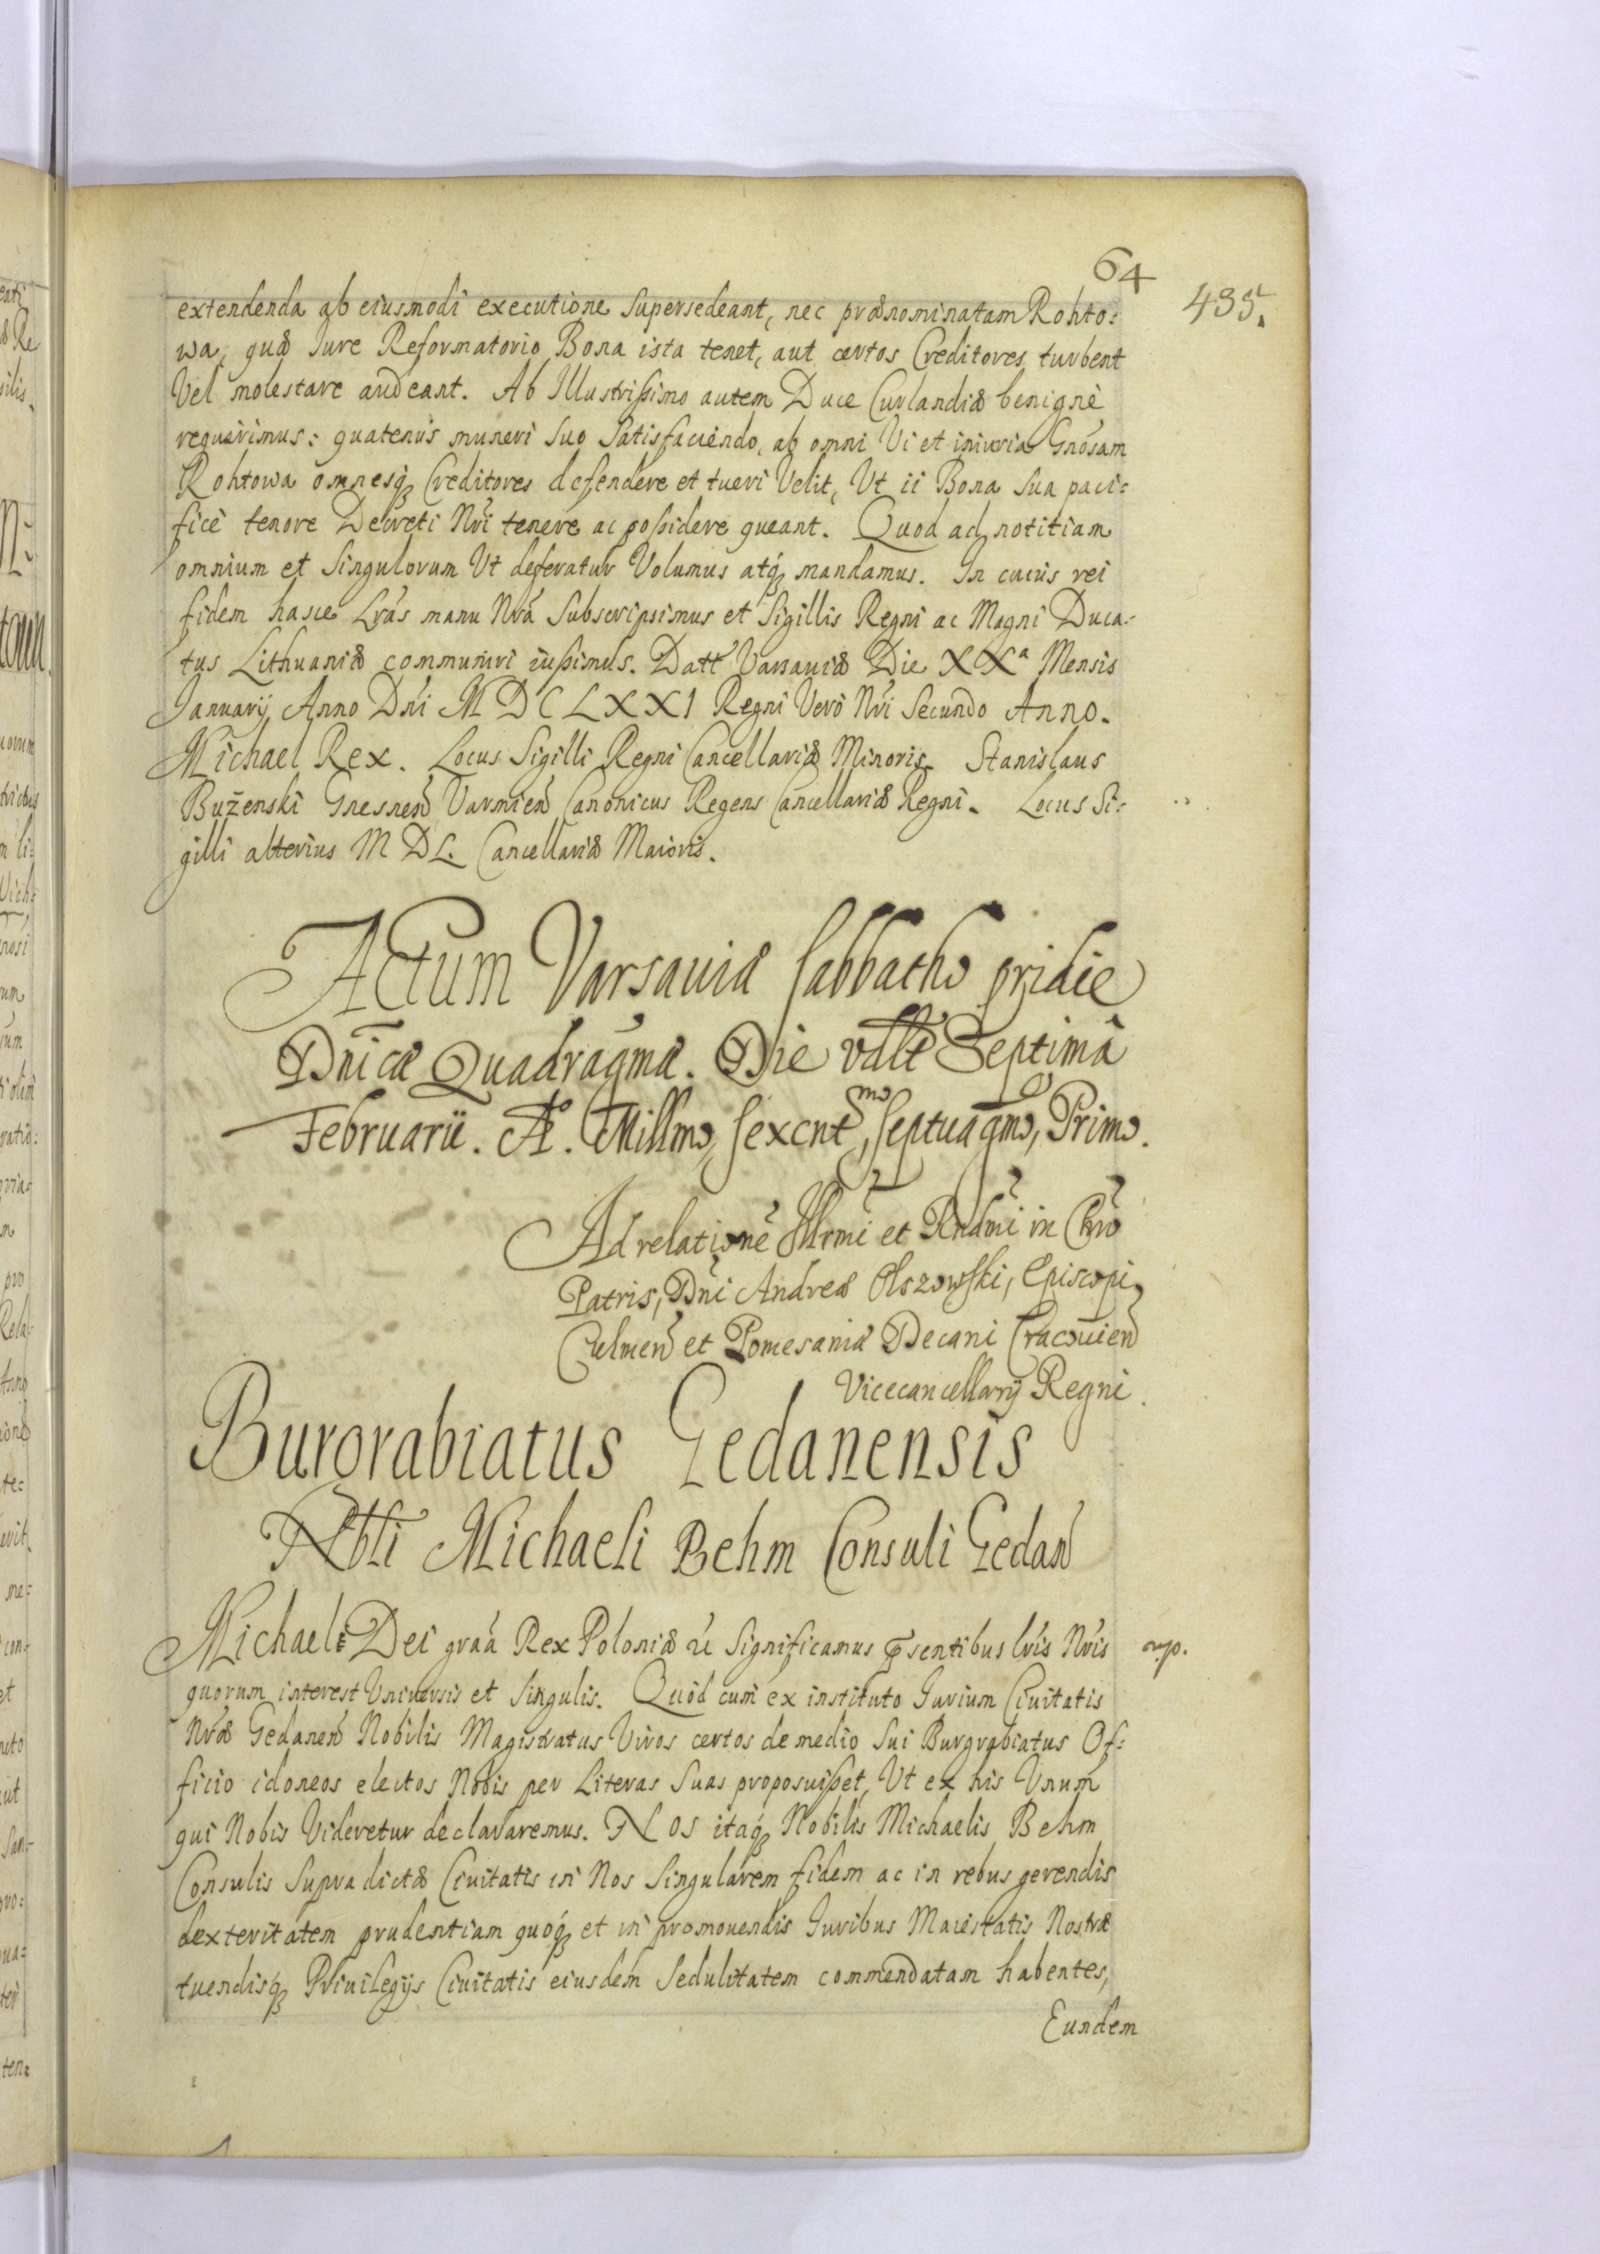 64
435.
extendenda ab eiusmodi executione supersedeant, nec prænominatam Rohto:
wa, quæ Iure Reformatorio Bona ista tenet, aut certos Creditores turbent
Vel molestare audeant. Ab Illustrißimo autem Duce Curlandiæ benignè
requirimus: quatenùs muneri suo satisfaciendo, ab omni Vi et iniuria Gnosam
Rohtowa omnesq́ꝫ Creditores defendere et tueri Velit, Vt ii Bona sua paci:
ficè tenore Decreti Nr̃i tenere ac poßidere queant. Quod ad notitiam
omnium et singulorum Vt deferatur Volumus atq́ꝫ mandamus. In cuiùs rei
fidem hasce Lrãs manu Nrã subscripsimus et Sigillis Regni ac Magni Duca:
tus Lithuaniæ communiri iußimus. Datt Varsauiæ Die XXª Mensis
January Anno Dñi MDCLXXI Regni Verò Nr̃i Secundo Anno.
Michael Rex. Locus Sigilli Regni Cancellariæ Minoris. Stanislaus
Buženski Gnesneñ Varmieñ Canonicus Regens Cancellariæ Regni. Locus Si:
gilli alterius M D L. Cancellariæ Maioris.
Actum Varsauiæ sabbatho pridie
Dñicæ Quadragmæ. Die vɫt Septimâ
Februarii. Aº. Millmo, sexcntmo, septuagmo, Primo.
Ad relationẽ Illrmi et Rndmi in Chr̃o
Patris, Dñi Andreæ Olszowski, Episcopi
Culmeñ et Pomesaniæ Decani Cracouieñ
Vicecancellarÿ Regni.
Burgrabiatus Gedanensis
Nbli Michaeli Behm Consuli Gedañ
Michael Dei graã Rex Poloniæ &c Significamus p̃sentibus lrĩs Nrĩs
mp.
quorum interest Vniuersis et singulis. Quòd cum ex instituto Iurium Ciuitatis
Nr̃æ Gedaneñ Nobilis Magistratus Viros certos de medio sui Burgrabiatus Of:
ficio idoneos electos Nobis per Literas suas proposuißet, Vt ex his Vnum
qui Nobis Videretur declararemus. Nos itaq́ꝫ Nobilis Michaelis Behm
Consulis supradictæ Ciuitatis in Nos singularem fidem ac in rebus gerendis
dexteritatem prudentiam quoq́ꝫ et in promouendis Iuribus Maiestatis Nostræ
tuendisq́ꝫ Priuilegÿs Ciuitatis eiusdem sedulitatem commendatam habentes,
Eundem